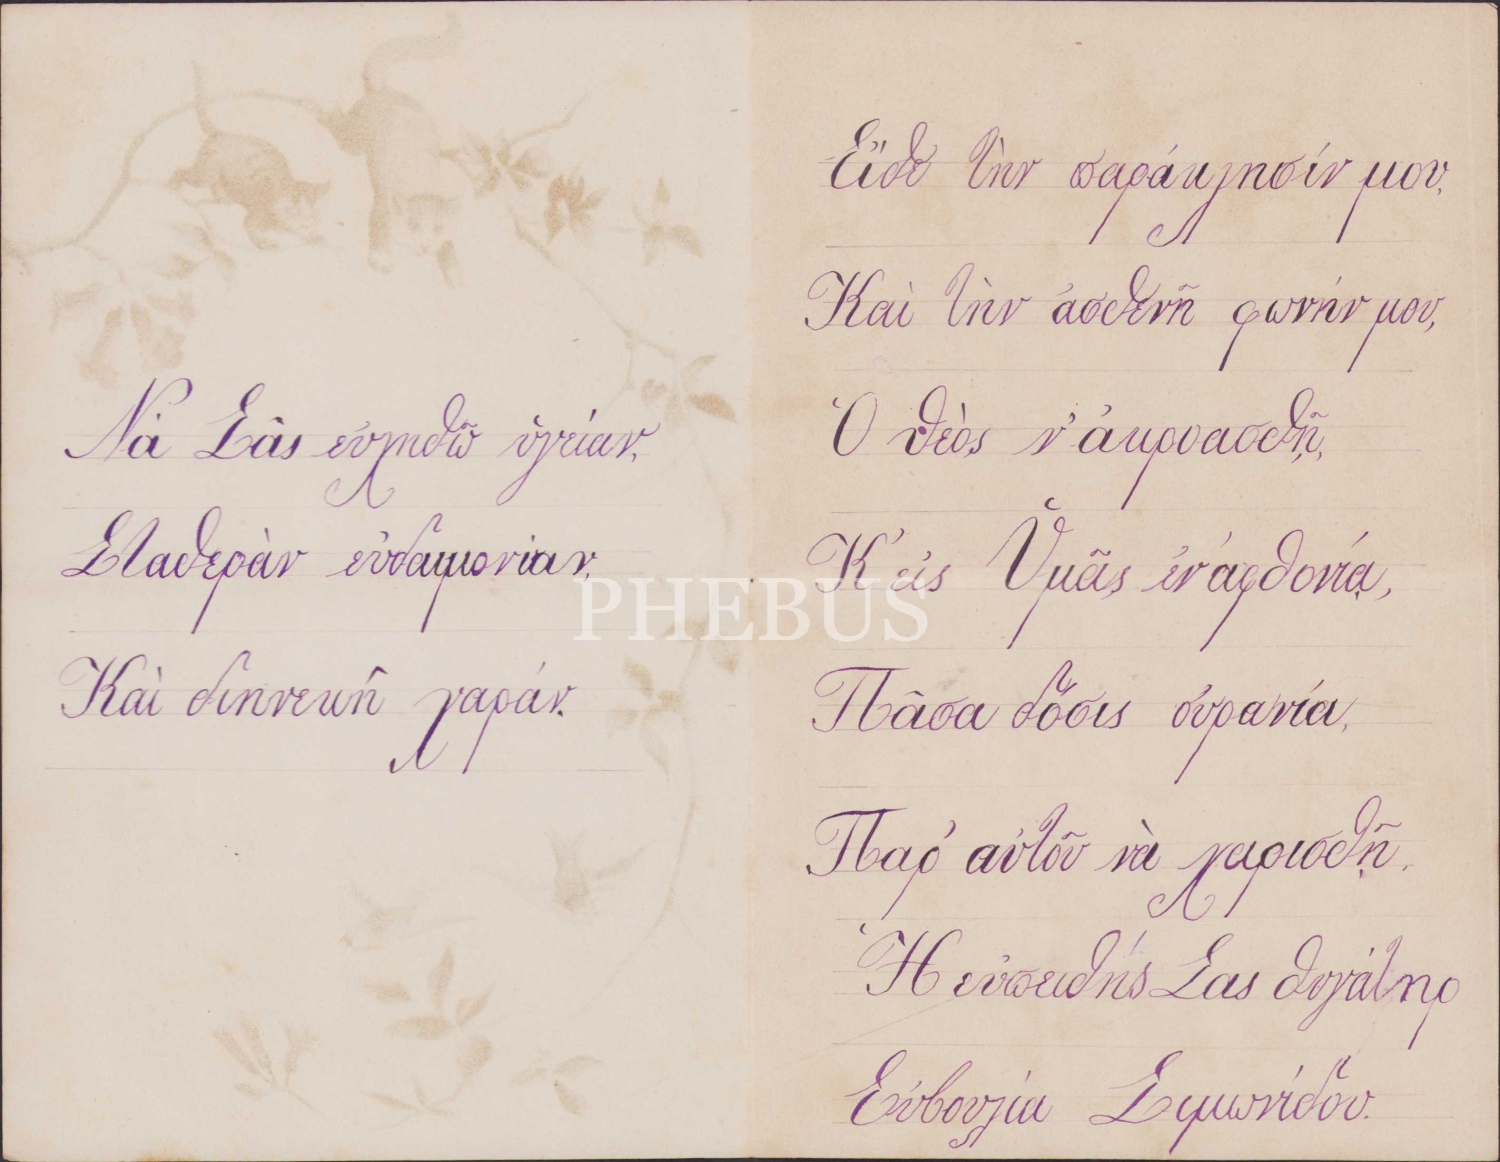 Νὰ Σᾶς εὐχηθῶ ὑγείαν,
Σταθερὰν εὐδαιμονίαν,
Καὶ διηνεκῆ χαράν.
Εἴθε τὴν παράκλησίν μου,
Καὶ τὴν ἀσθενῆ φωνήν μου,
Ὁ θεὸς ν' ἀκροασθῇ,
Κ' εἰς Ὑμᾶς ἐν ἀφθονίᾳ,
Πᾶσα δόσις οὐρανία,
Παρ' αὐτοῦ νὰ χαρισθῇ.
Ἡ εὐπειθής Σας θυγάτηρ
Εὐβουλία Σιμωνίδου.
PHEBUS